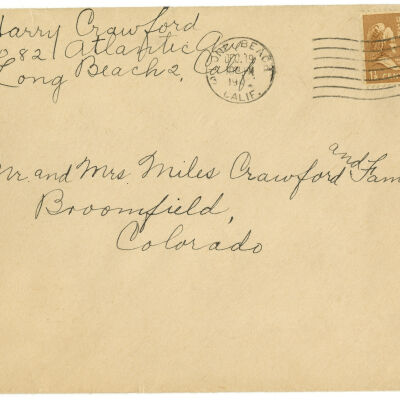 Harry Crawford
282 Atlantic
Long Beach 2, Calif.
BEACH
DEC 19
CALIF.
Mr. and Mrs. Miles Crawford and Fam
Broomfield,
Colorado